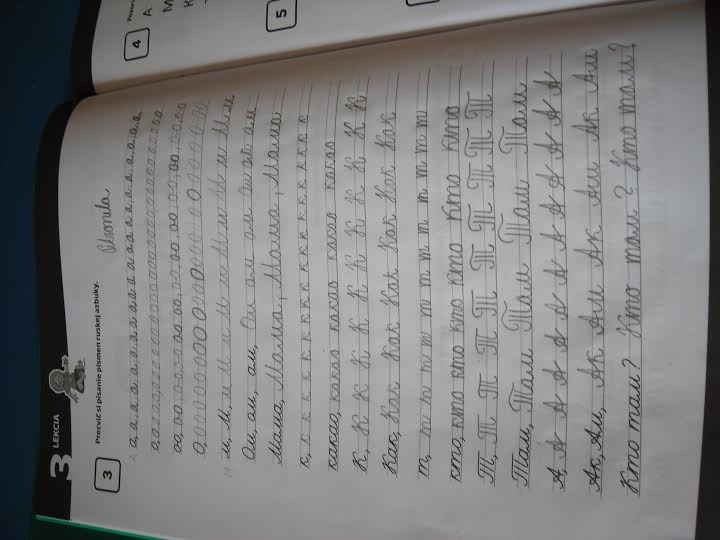 3 LEKCIA
3 Precvič si písanie písmen ruskej azbuky.
а, а а а а а а а а а а а а а а а а а
о, о о о о о о о о о о о о о о о о о
оо, оо оо оо оо оо оо оо оо оо
О, О О О О О О О О О О О О О О
м, М, м М м М м М м М м
Ом, ом, ам, Ом ам Ом ой ам
Мама, Мама, Мама, Мама
к, к к к к к к к к к к к к к
какао, какао какао какао какао
К, К К К К К К К К К К
Как, Как Как Как Как Как Как
т, т т т т т т т т т т
кто, кто кто кто кто кто кто
Т, Т Т Т Т Т Т Т Т Т
Там, Там Там Там Там
А, А А А А А А А А А А А
Ак, Ам, Ак Ам Ак Ам Ак Ам
Кто там? Кто там? Кто там?
4
А
М
К
5